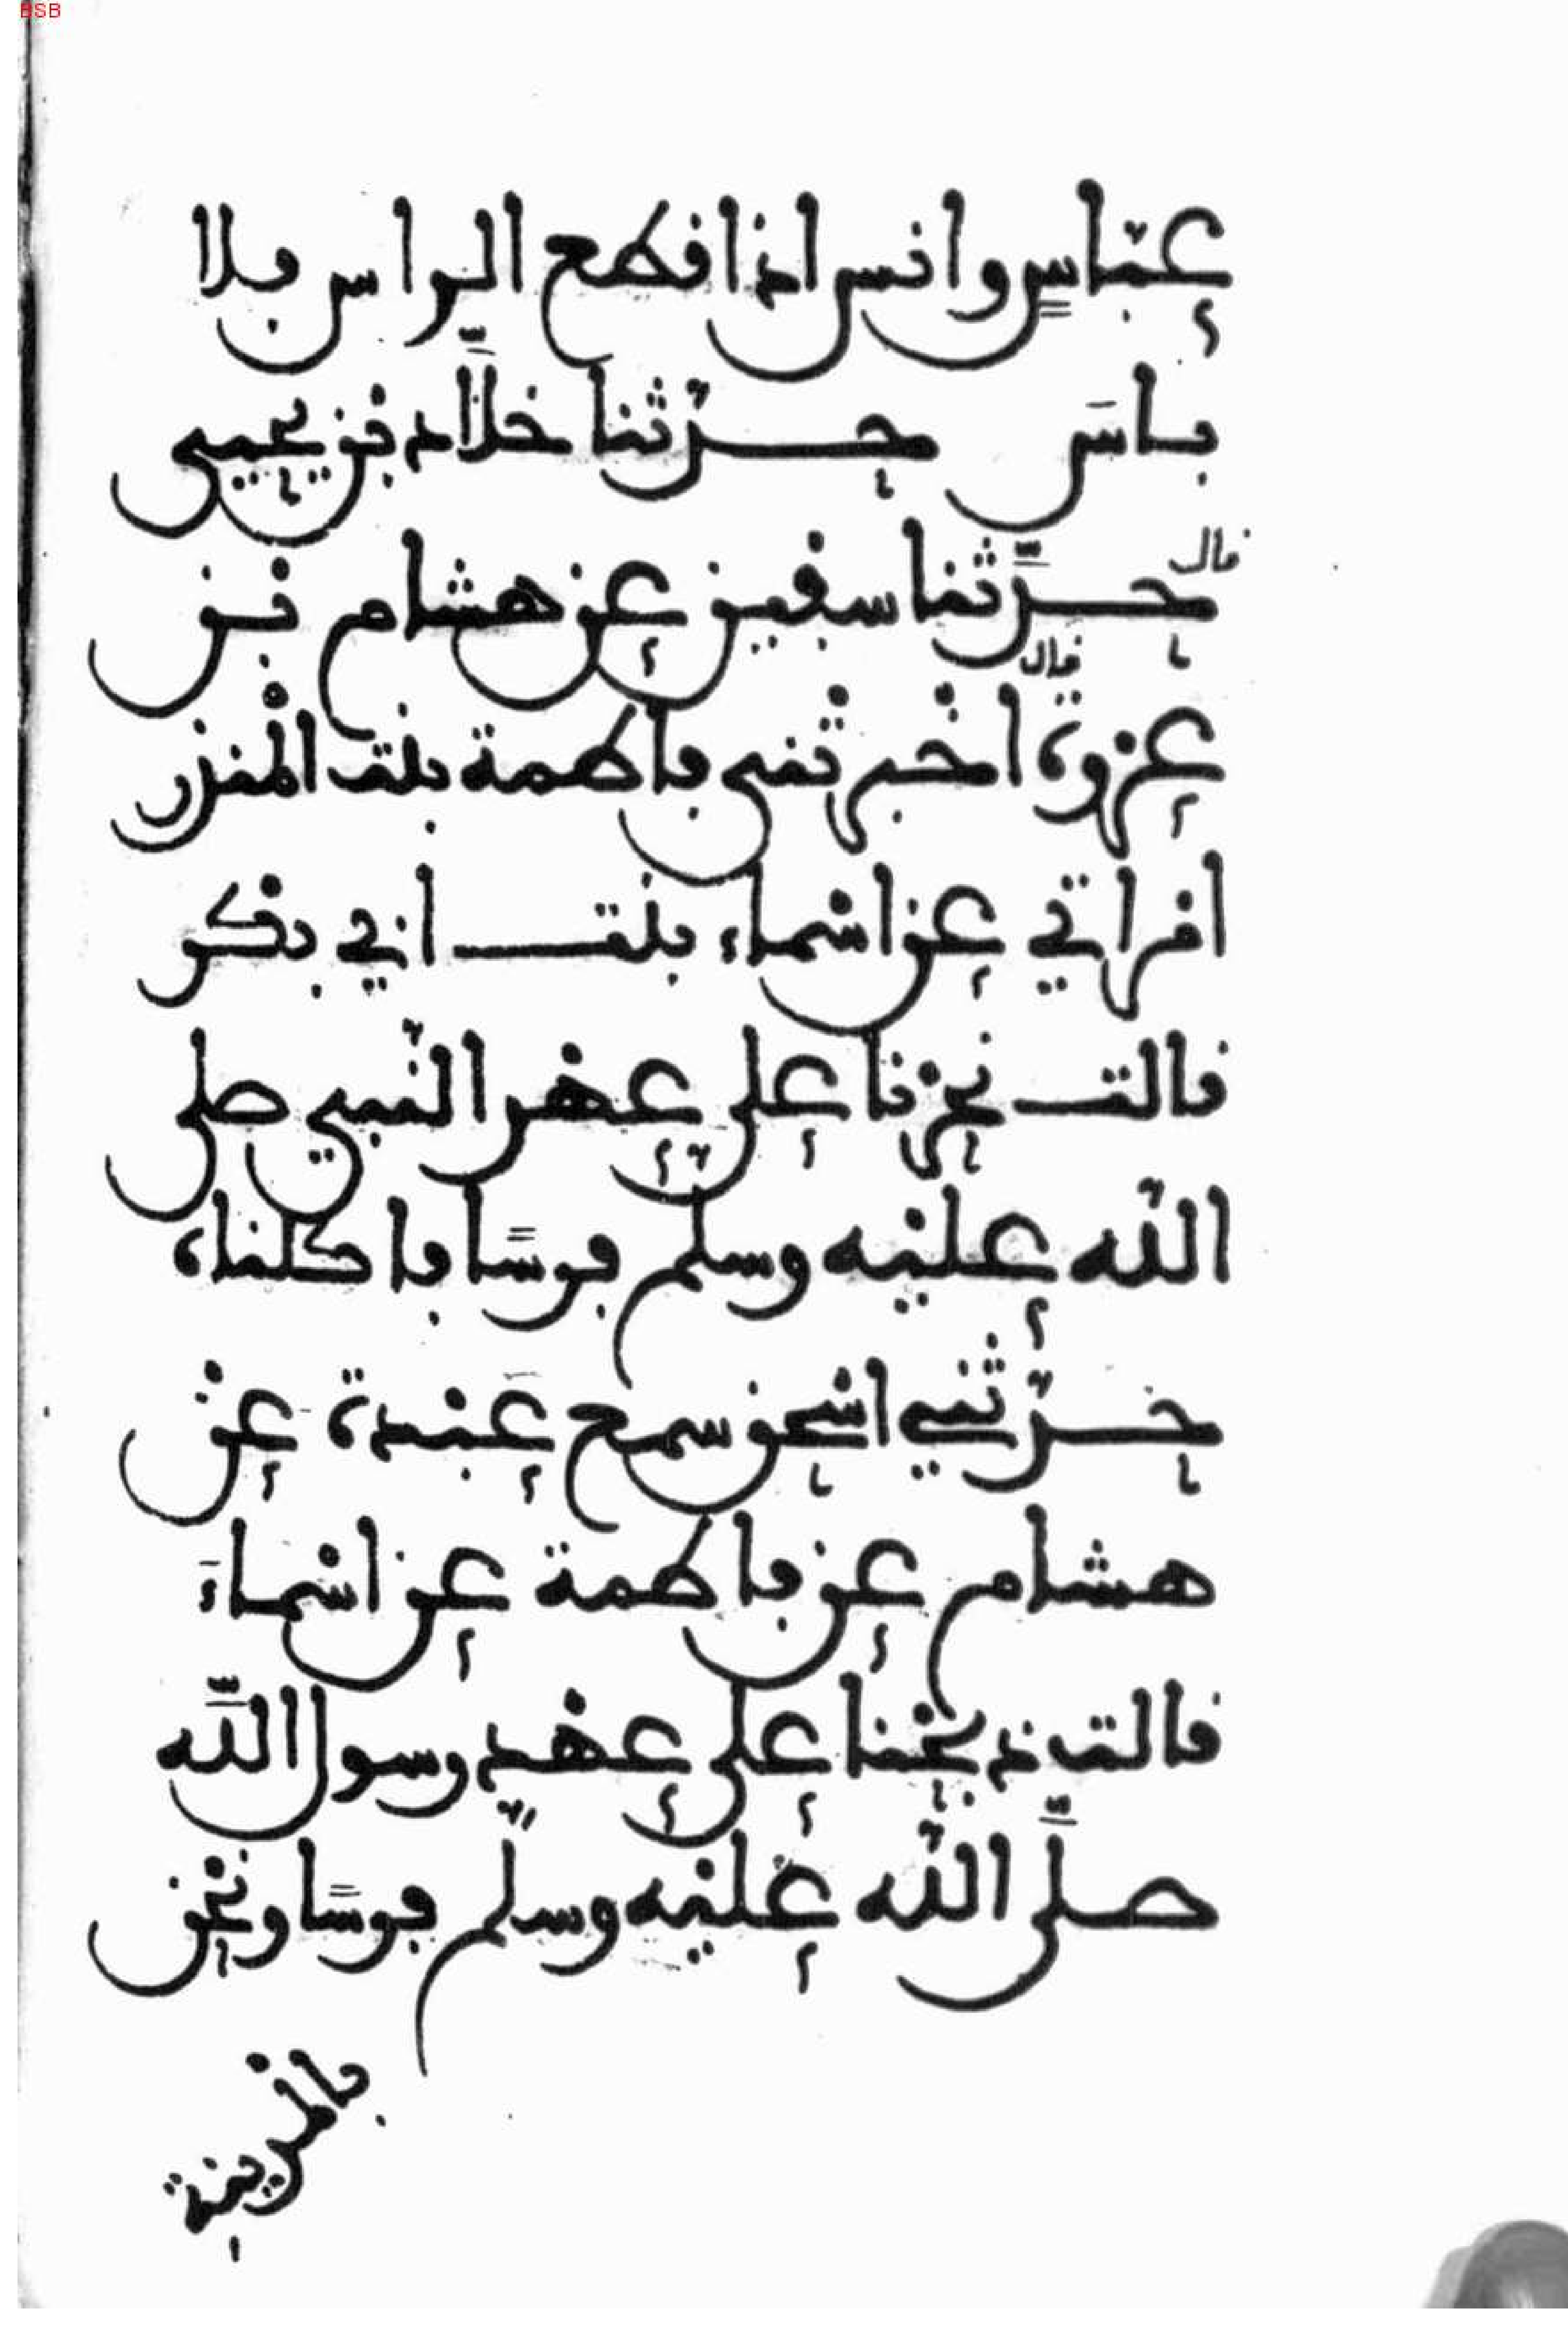 BSB
عبّاسٍ وانس اذا قطع الراس فلا
باسَ حدّثنا خلّاد بن يحيى
قال حدّثنا سفين عن هشام بن
عروة قال اخبرتني فاطمة بنت المنذر
امراتي عن اسماء بنت ابي بكر
قالت نحرنا على عهد النّبي صلى
اللّه عليه وسلّم فرسًا فاكلناه
حدّثني اسحق سمع عبدة عن
هشام عن فاطمة عن اسماءَ
قالت ذبحنا على عهد رسول اللّه
صلّى اللّه عليه وسلّم فرسًا ونحن
بالمدينة